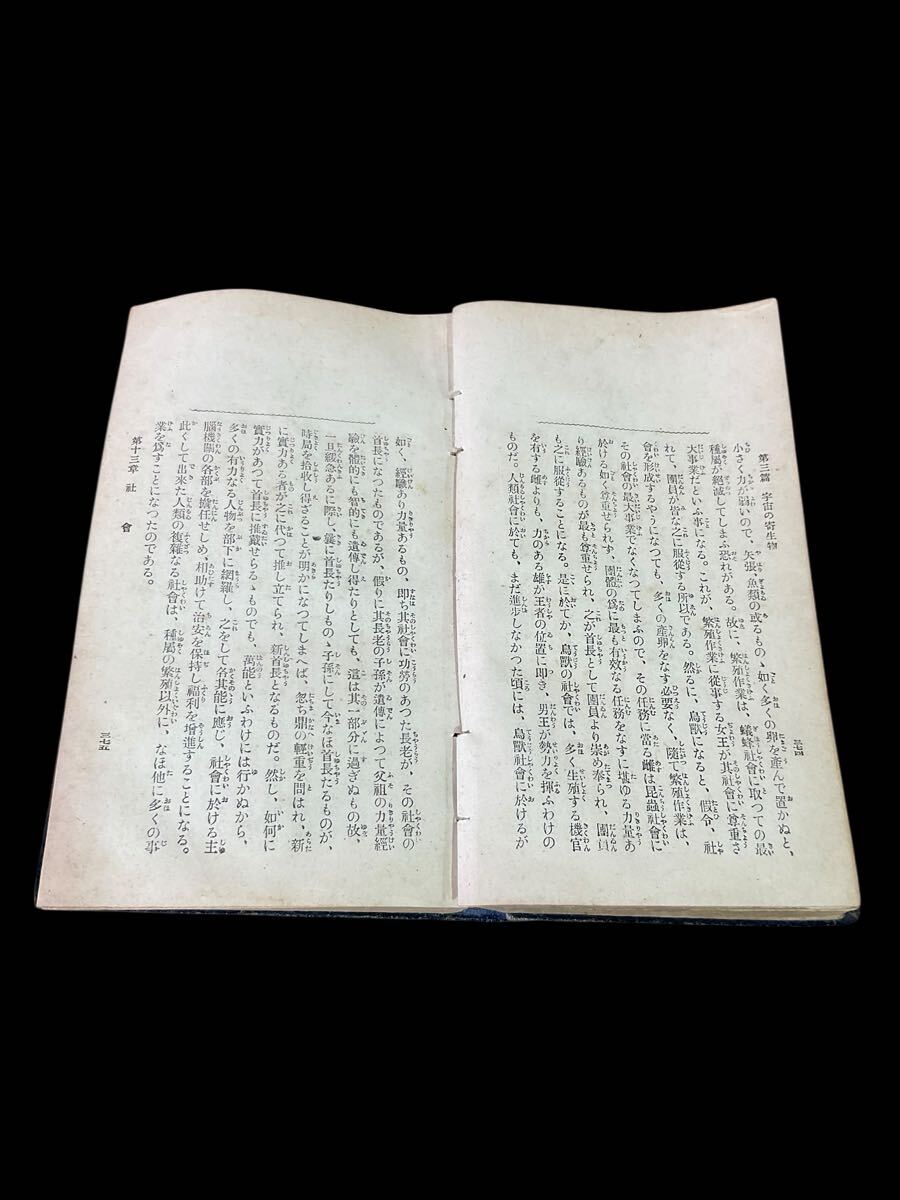 第三篇 宇宙の寄生物
三七四
小さく力が弱いので、矢張魚類の或るものゝ如く多くの卵を產んで置かぬと、
種屬が絕滅してしまふ恐れがある。故に、繁殖作業は、蟻蜂社會に取つての最
大事業だといふ事になる。これが、繁殖作業に從事する女王が其社會に尊重さ
れて、團員が皆な之に服從する所以である。然るに、鳥獸になると、假令、社
會を形成するやうになつても、多くの產卵をなす必要なく、隨て繁殖作業は、
その社會の最大事業でなくなつてしまふので、その任務に當る雌は昆蟲社會に
於ける如く尊重せられず、團體の爲に最も有效なる任務をなすに堪ゆる力量あ
り經驗あるものが最も尊重せられ、之が首長として團員より崇め奉られ、團員
も之に服從することになる。是に於てか、鳥獸の社會では、多く生殖する機官
を有する雌よりも、力のある雄が王者の位置に卽き、男王が勢力を揮ふわけの
ものだ。人類社會に於ても、まだ進步しなかつた頃には、鳥獸社會に於けるが
如く、經驗あり力量あるもの、卽ち其社會に功勞のあつた長老が、その社會の
首長になつたものであるが、假りに其長老の子孫が遺傳によつて父祖の力量經
驗を體的にも智的にも遺傳し得たりとしても、這は其一部分に過ぎぬもの故、
一旦緩急あるに際し、曩に首長たりしものゝ子孫にして今なほ首長たるものが、
時局を拾收し得ざることが明かになつてしまへば、忽ち鼎の輕重を問はれ、新
に實力ある者が之に代つて推し立てられ、新首長となるものだ。然し、如何に
實力があつて首長に推戴せらるゝものでも、萬能といふわけには行かぬから、
多くの有力なる人物を部下に網羅し、之をして各其能に應じ、社會に於ける主
腦機關の各部を擔任せしめ、相助けて治安を保持し福利を增進することになる。
此くして出來た人類の複雜なる社會は、種屬の繁殖以外に、なほ他に多くの事
業を爲すことになつたのである。
第十三章 社會
三七五